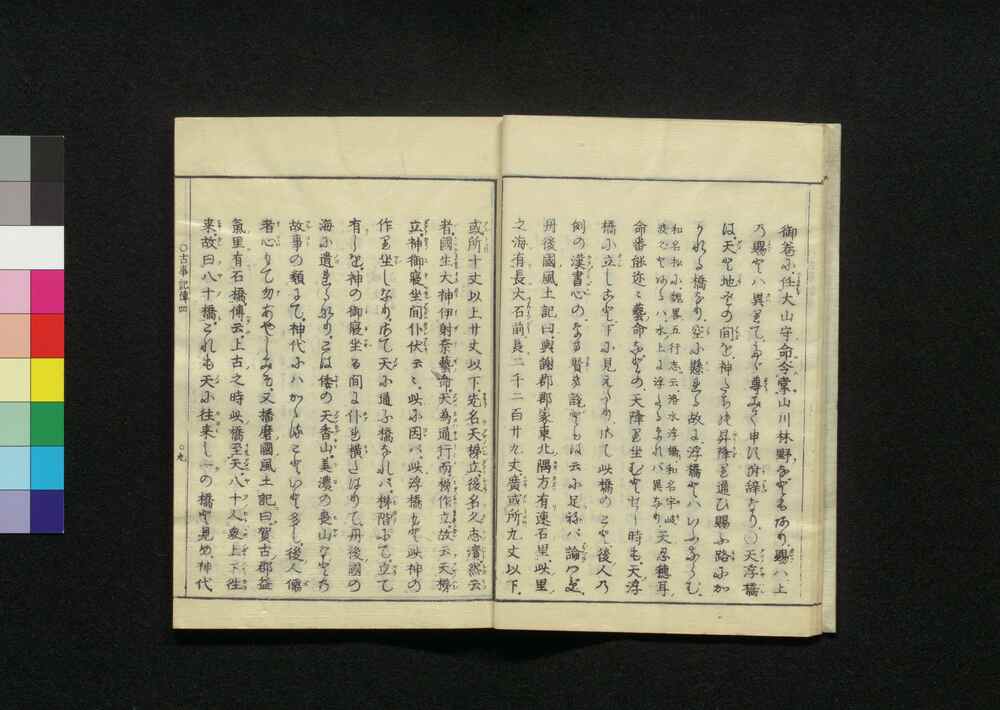 御巻に、任大山守命令掌山川林野などもあり、賜ハ上
の賜とハ異にて、たゞ尊みて申す附辞なり、○天浮橋
は、天と地との間を、神たちの昇降り通ひ賜ふ路にか
かれる橋なり、空に懸れる故に、浮橋とハいふならむ、
和名抄に、魏畧五行志云洛水浮橋和名宇岐
波之とあるハ、水上に浮たるなれバ異なり、天忍穂耳
命番能迩々藝命などの天降り坐むとせし時も、天浮
橋に立しこと、下に見えたり、
例の漢書心の
丹後國風土記曰、與謝郡郡家東北隅方有速石里、此里
之海有長大石前、長二千二百廿九丈、廣或所九丈以下、
或所十丈以上廿丈以下、先名天梯立、後名久志濱、然云
者、國生大神伊射奈藝命、天為通行而、梯作立、故云天梯
立、神御寝坐間仆伏云々、此に因バ、此浮橋もと此神の
作り坐しなり、さて天に通ふ橋なれバ、梯階にて立て
有しを、神の御寝坐る間に、仆れ横たはりて、丹後國の
海に遺れるなり、こは倭の天香山、美濃の喪山などの
故事の類にて、神代にハかゝるたぐひいと多し、後人儒
者心もて勿あやしみそ、又播磨國風土記曰、賀古郡益
氣里有石橋、傳云、上古之時此橋至天、八十人衆上下往
来、故曰八十橋、これも天に往来し一の橋と見ゆ、神代
○古事記傳四
○九